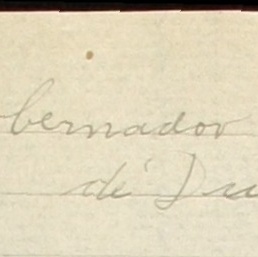 obernador
de Du